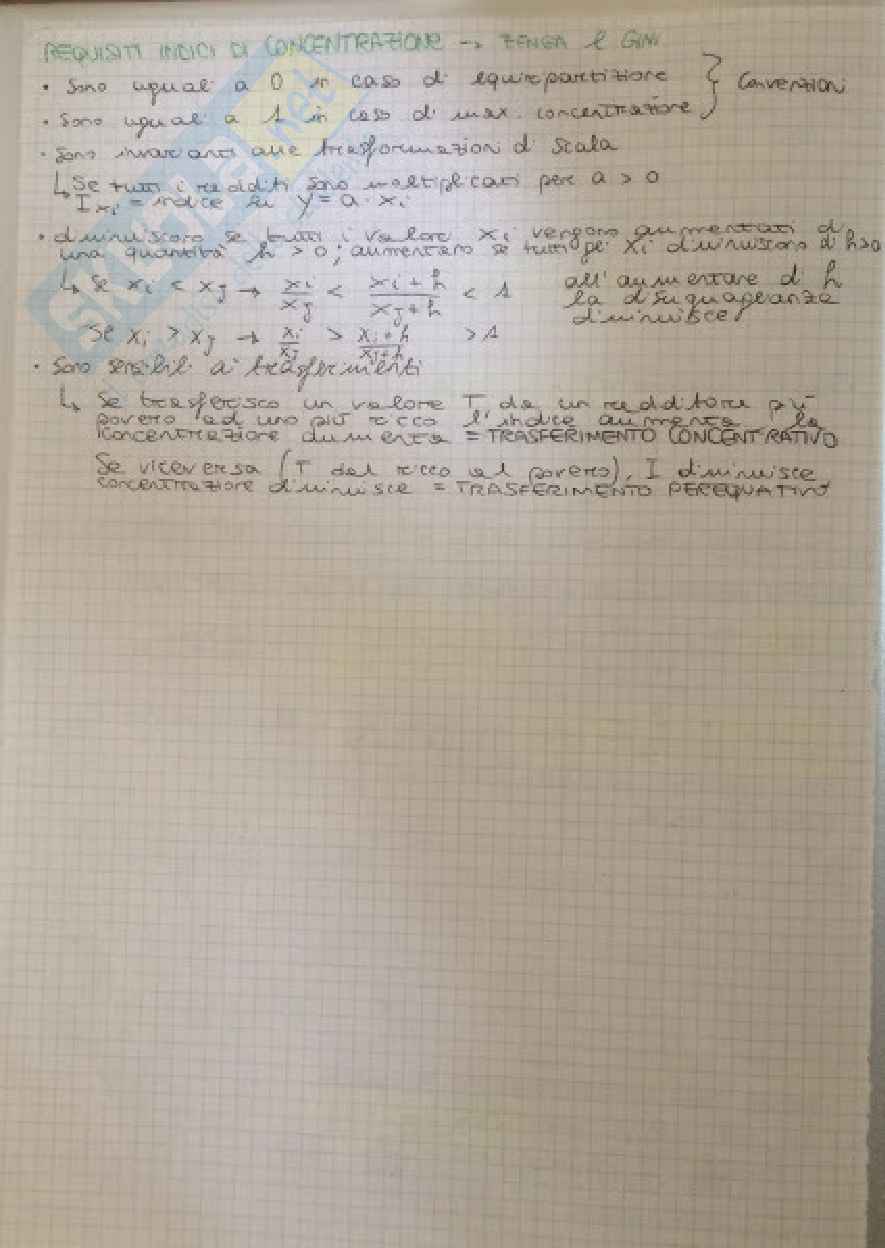 REQUISITI INDICI DI CONCENTRAZIONE → ZENGA e GINI
• Sono uguali a 0 in caso di equiripartizione } Convenzioni
• Sono uguali a 1 in caso di max. concentrazione
• Sono invarianti alle trasformazioni di scala
↳ Se tutti i redditi sono moltiplicati per a > 0
I xi = indice su y = a · xi
• diminuiscono se tutti i valori xi vengono aumentati di
una quantità h > 0; aumentano se tutti gli xi diminuiscono di h>0
↳ Se xi < xj → xi/xj < (xi + h)/(xj + h) < 1 all'aumentare di h
la disuguaglianza
diminuisce
Se xi > xj → xi/xj > (xi + h)/(xj + h) > 1
• Sono sensibili ai trasferimenti
↳ Se trasferisco un valore T da un redditore più
povero ad uno più ricco l'indice aumenta, la
concentrazione aumenta = TRASFERIMENTO CONCENTRATIVO
Se viceversa (T dal ricco al povero), I diminuisce
concentrazione diminuisce = TRASFERIMENTO PEREQUATIVO
skuola.net